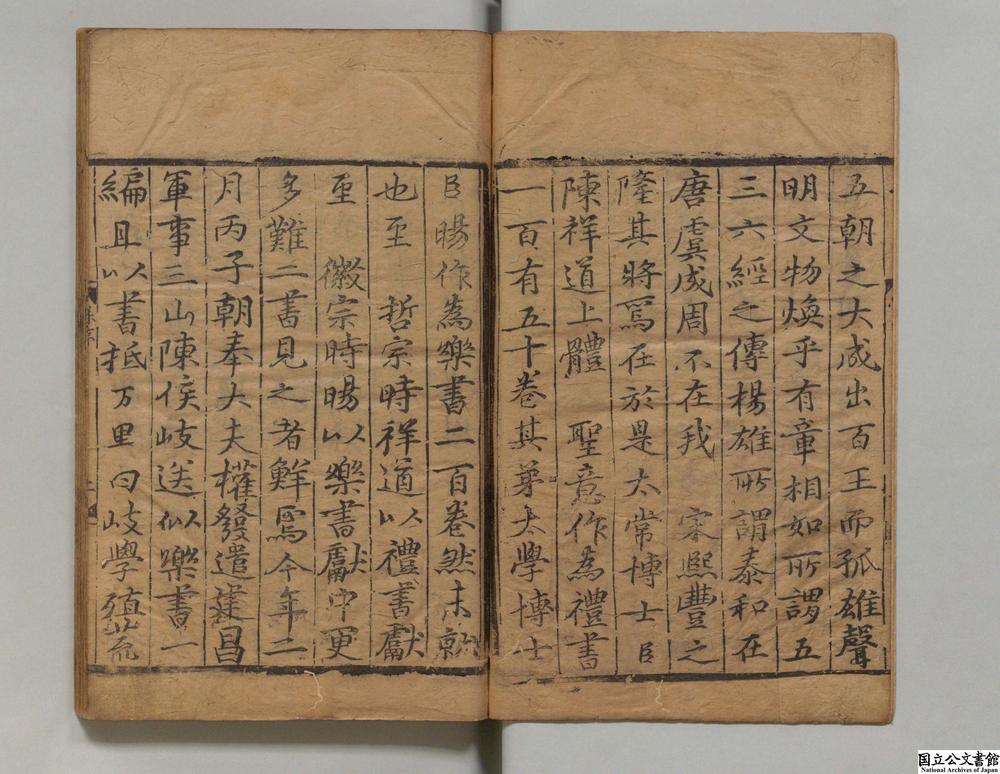 五朝之大成出百王而孤雄聲
明文物煥乎有章相如所謂五
三六經之傳楊雄所謂泰和在
唐虞成周不在我 宋熙豐之
隆其將焉在於是太常博士臣
陳祥道上體 聖意作為禮書
一百有五十卷其弟太學博士
臣暘作為樂書二百卷然未就
也至 哲宗時祥道以禮書獻
至 徽宗時暘以樂書獻中更
多難二書見之者鮮焉今年二
月丙子朝奉大夫權發遣建昌
軍事三山陳侯岐送似樂書一
編且以書抵万里曰岐學殖荒
国立公文書館
National Archives of Japan